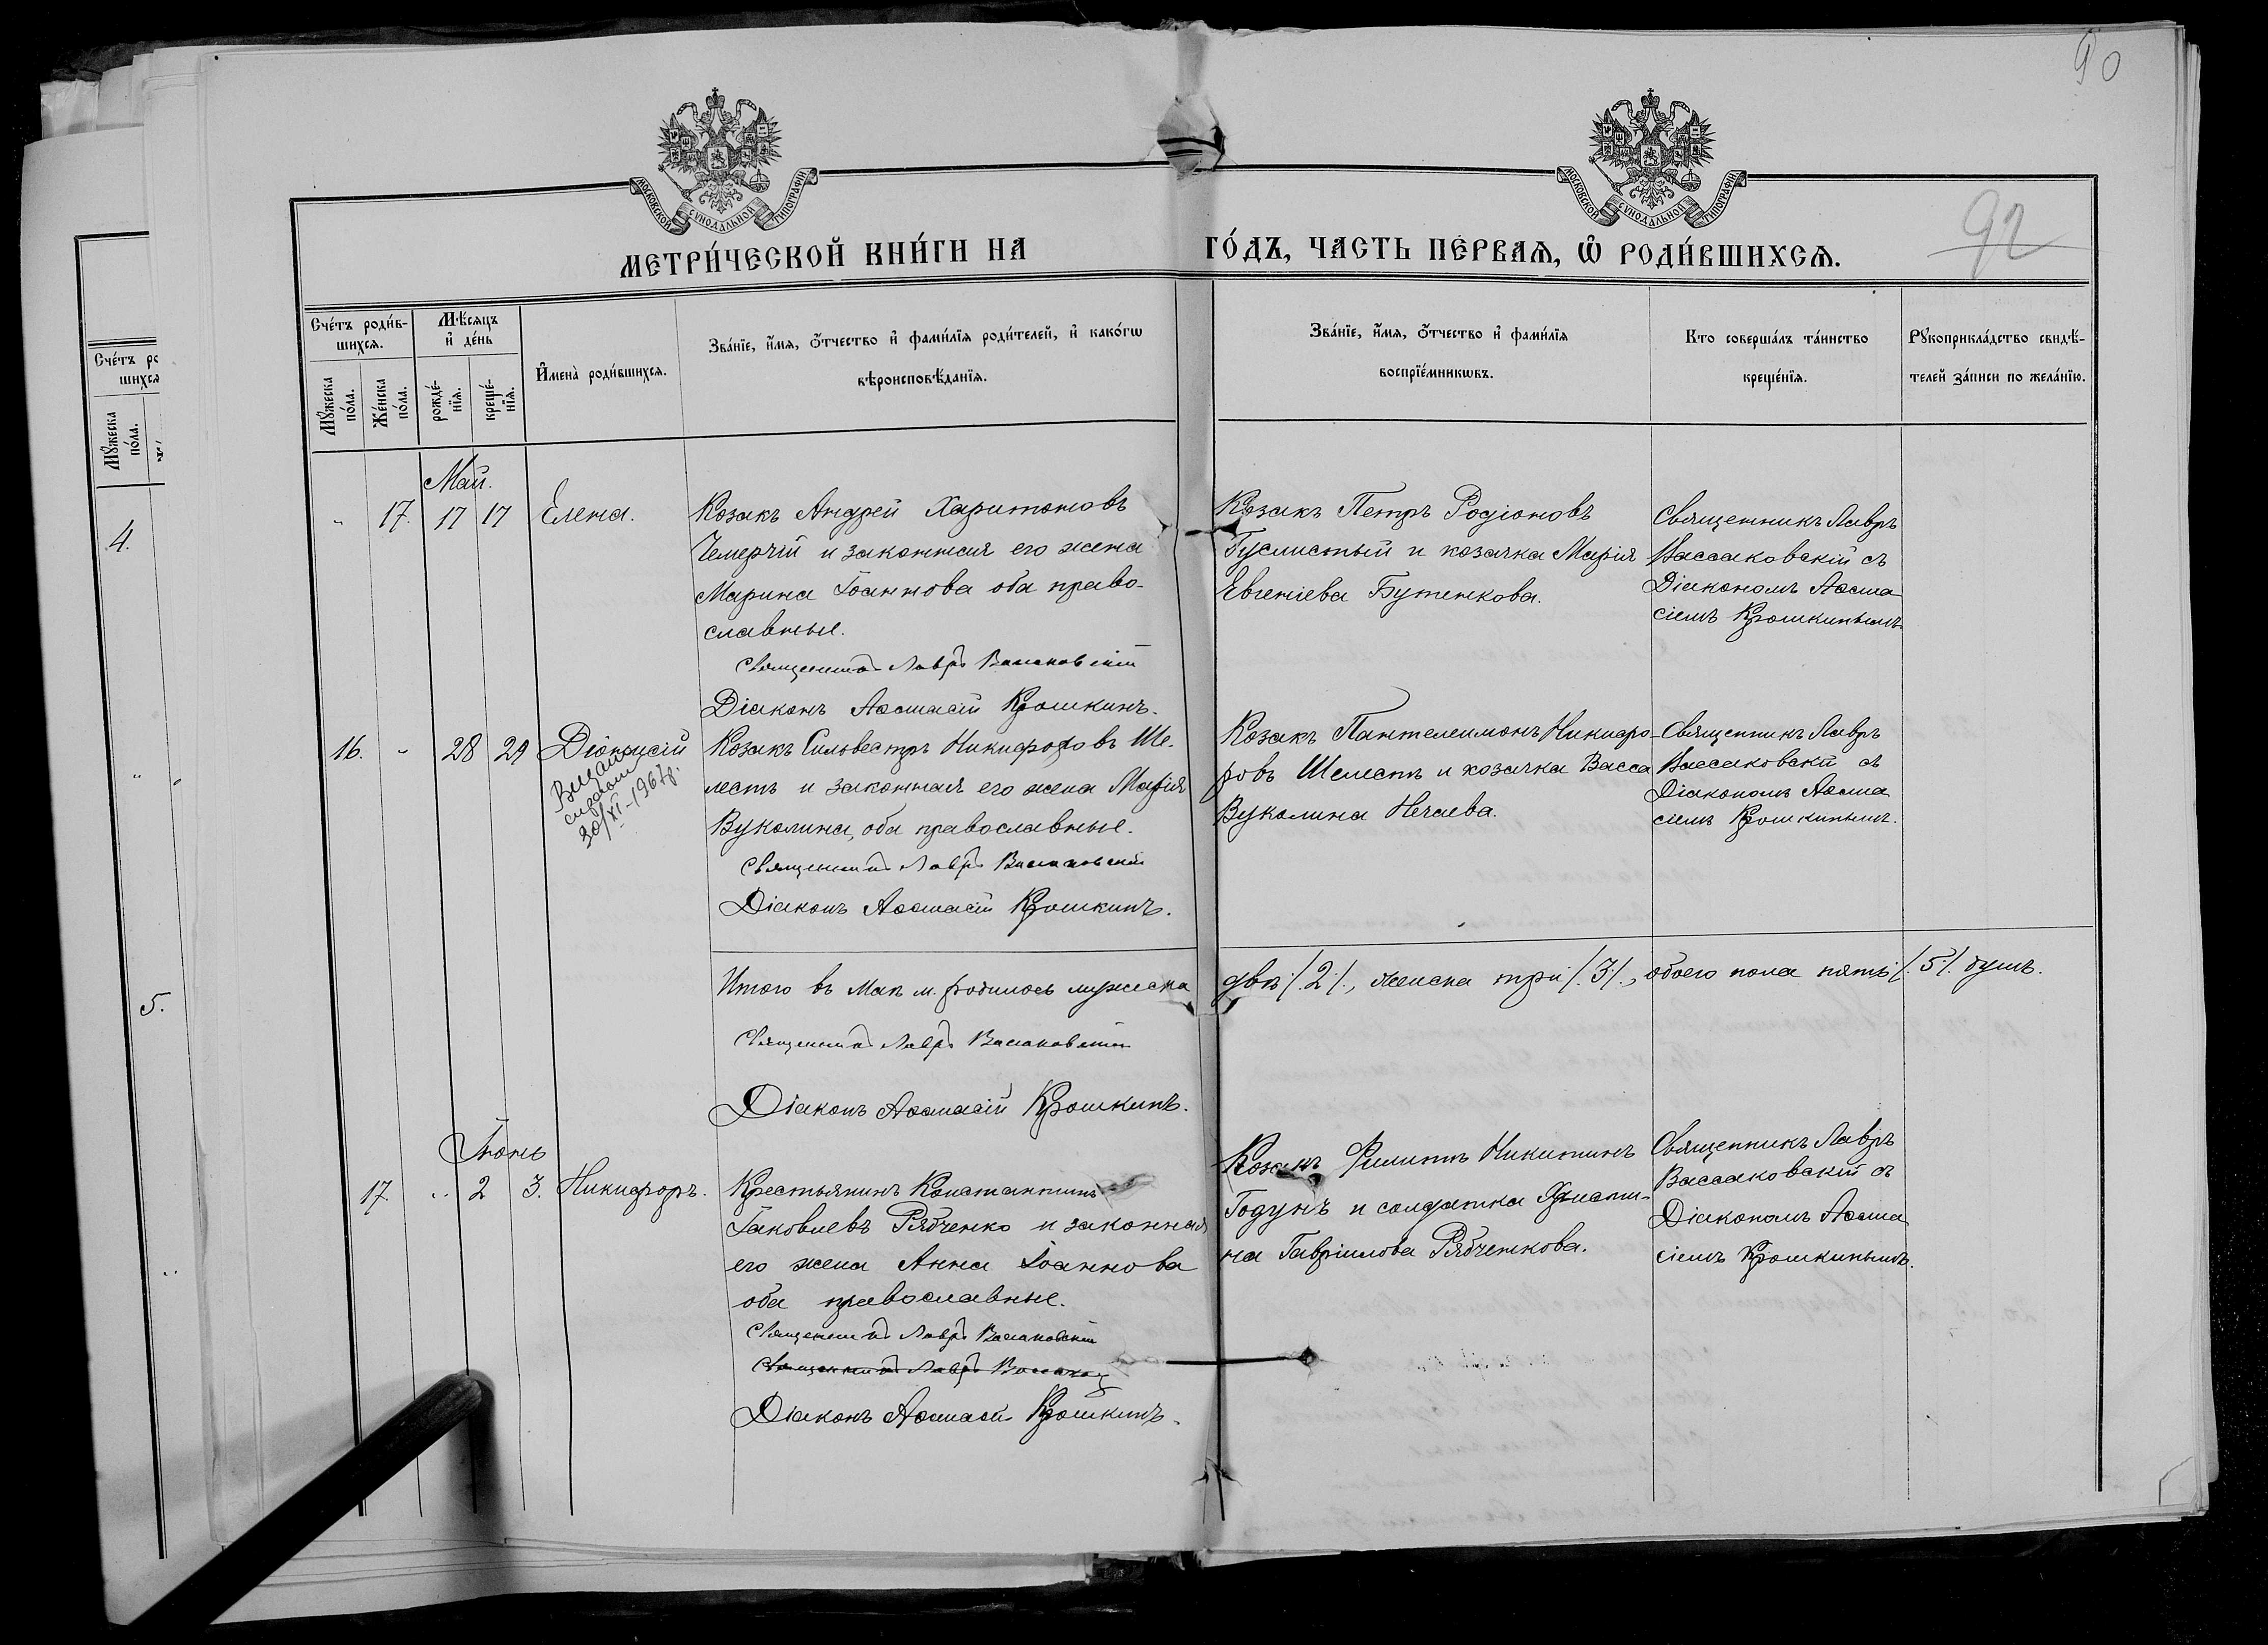 90
92
МОСКОВСКОЙ СѴНОДАЛЬНОЙ ТИПОГРАФІИ
МОСКОВСКОЙ СѴНОДАЛЬНОЙ ТИПОГРАФІИ
МЕТРИ́ЧЕСКОЙ КНИ́ГИ НА ГО́ДЪ, ЧАСТЬ ПЕ́РВАѦ, Ѡ҆ РОДИ́ВШИХСѦ.
Сче́тъ ро
шихсѧ
Мꙋ́жеска по́ла.
4.
5.
Сче́тъ роди́в-
шихсѧ.
Мꙋ́жеска по́ла.
Же́нска по́ла.
Мѣ́сѧцъ
и҆ де́нь
рожде́-
нїѧ.
креще́-
нїѧ.
И҆мена̀ роди́вшихсѧ.
Зва́нїе, и҆́мѧ, ѻ҆́тчество и҆ фами́лїѧ роди́телей, и҆ како́гѡ
вѣроисповѣ́данїѧ.
Зва́нїе, и҆́мѧ, ѻ҆́тчество и҆ фами́лїѧ
воспрїе́мникѡвъ.
Кто соверша́лъ та́инство
креще́нїѧ.
Рꙋкоприкла́дство свидѣ́-
телей за́писи по жела́нїю.
Май.
" 17. 17 17 Елена.
Козакъ Андрей Харитоновъ
Чемерчій и законная его жена
Марина Іоаннова оба право-
славные.
Священникъ Лавръ Вассаковскій
Діаконъ Аѳанасій Крошкинъ.
Козакъ Петръ Родіоновъ
Гуслистый и козачка Марія
Евгеніева Бутенкова.
Священникъ Лавръ
Вассаковскій съ
Діакономъ Аѳана
сіемъ Крошкинымъ.
16. " 28 29 Діонисій
20/XI-1967р.
Козакъ Сильвестръ Никифоровъ Ше-
лестъ и законная его жена Марія
Вуколина, оба православные.
Священникъ Лавръ Вассаковскій
Діаконъ Аѳанасій Крошкинъ.
Козакъ Пантелеимонъ Никифо-
ровъ Шелестъ и козачка Васса
Вуколина Нечаева.
Священникъ Лавръ
Вассаковскій съ
Діакономъ Аѳана
сіемъ Крошкинымъ.
Итого въ Маѣ м. родилось мужеска двѣ /.2./, женска три /.3./, обоего пола пять /.5./ душъ.
Священникъ Лавръ Вассаковскій
Діаконъ Аѳанасій Крошкинъ.
Іюнь
17. " 2 3. Никифоръ.
Крестьянинъ Константинъ
Іаковлевъ Рябченко и законная
его жена Анна Іоаннова
оба православные.
Священникъ Лавръ Вассаковскій
Священникъ Лавръ Вассаков
Діаконъ Аѳанасій Крошкинъ.
Козакъ Филиппъ Никитинъ
Годунъ и солдатка
на Гавріилова Рябченкова.
Священникъ Лавръ
Вассаковскій съ
Діакономъ Аѳана
сіемъ Крошкинымъ.